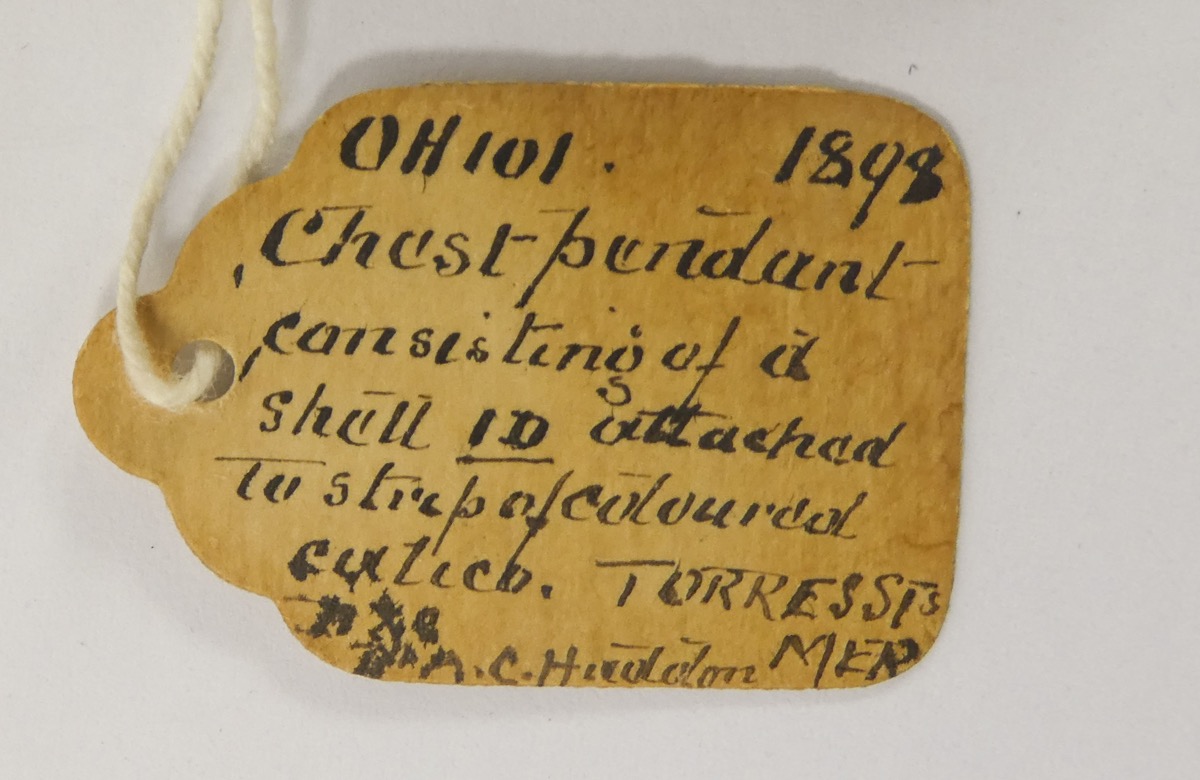 OH 101. 1898
Chest pendant
consisting of a
shell ID attached
to strip of coloured
calico. TORRES STS
MER
A.C. Haddon